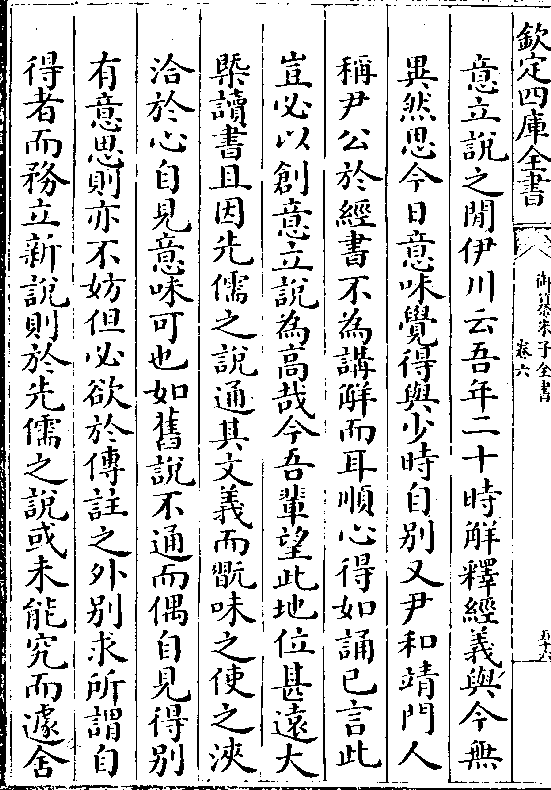 欽定四庫全書
御纂朱子全書
卷六
意立說之閒伊川云吾年二十時解釋經義與今無
異然思今日意味覺得與少時自别又尹和靖門人
稱尹公於經書不為講解而耳順心得如誦已言此
豈必以創意立說為高哉今吾輩望此地位甚逺大
槩讀書且因先儒之說通其文義而翫味之使之浹
洽於心自見意味可也如舊說不通而偶自見得别
有意思則亦不妨但必欲於傳註之外别求所謂自
得者而務立新說則於先儒之說或未能究而遽舍